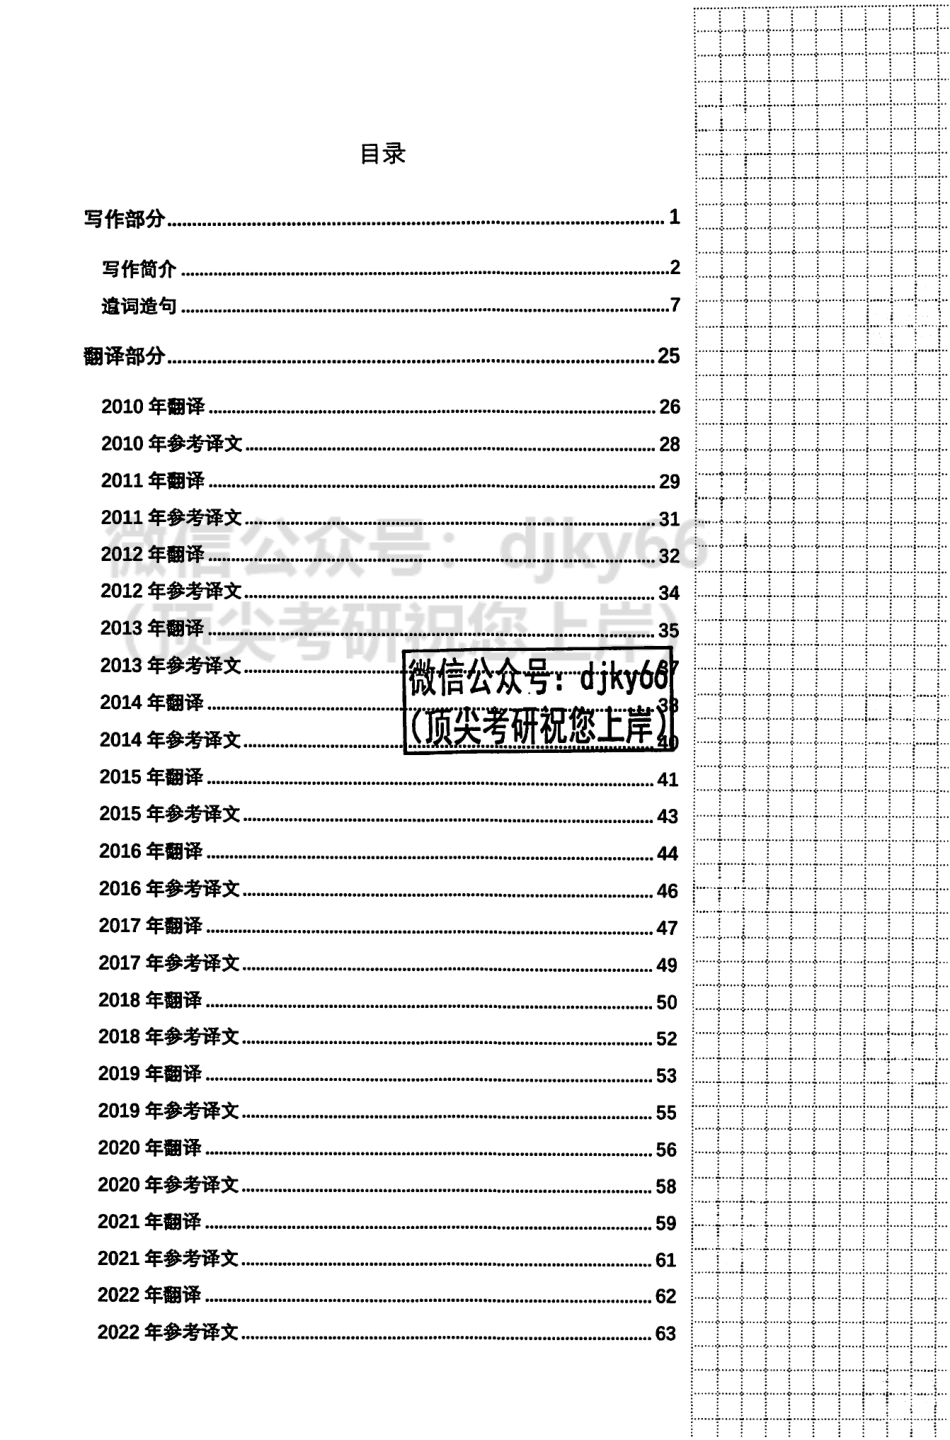 目录
写作部分 1
写作简介 2
遣词造句 7
翻译部分 25
2010 年翻译 26
2010 年参考译文 28
2011 年翻译 29
2011 年参考译文 31
微信公众号：djky66
2012 年翻译 32
2012 年参考译文 34
（顶尖考研祝您上岸）
2013 年翻译 35
2013 年参考译文 37
微信公众号：djky66
2014 年翻译 38
(顶尖考研祝您上岸)
2014 年参考译文 40
2015 年翻译 41
2015 年参考译文 43
2016 年翻译 44
2016 年参考译文 46
2017 年翻译 47
2017 年参考译文 49
2018 年翻译 50
2018 年参考译文 52
2019 年翻译 53
2019 年参考译文 55
2020 年翻译 56
2020 年参考译文 58
2021 年翻译 59
2021 年参考译文 61
2022 年翻译 62
2022 年参考译文 63